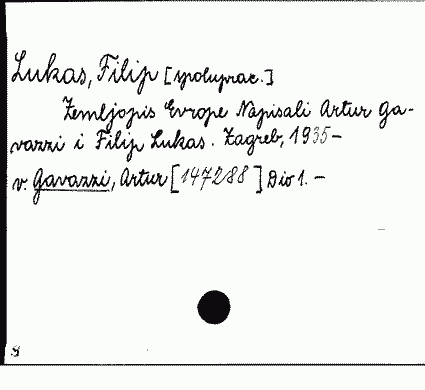 Lukas, Filip [spoluprac.]
Zemljopis Evrope Napisali Artur Ga-
vazzi i Filip Lukas. Zagreb, 1935-
v. Gavazzi, Artur [147288] Dio 1. -